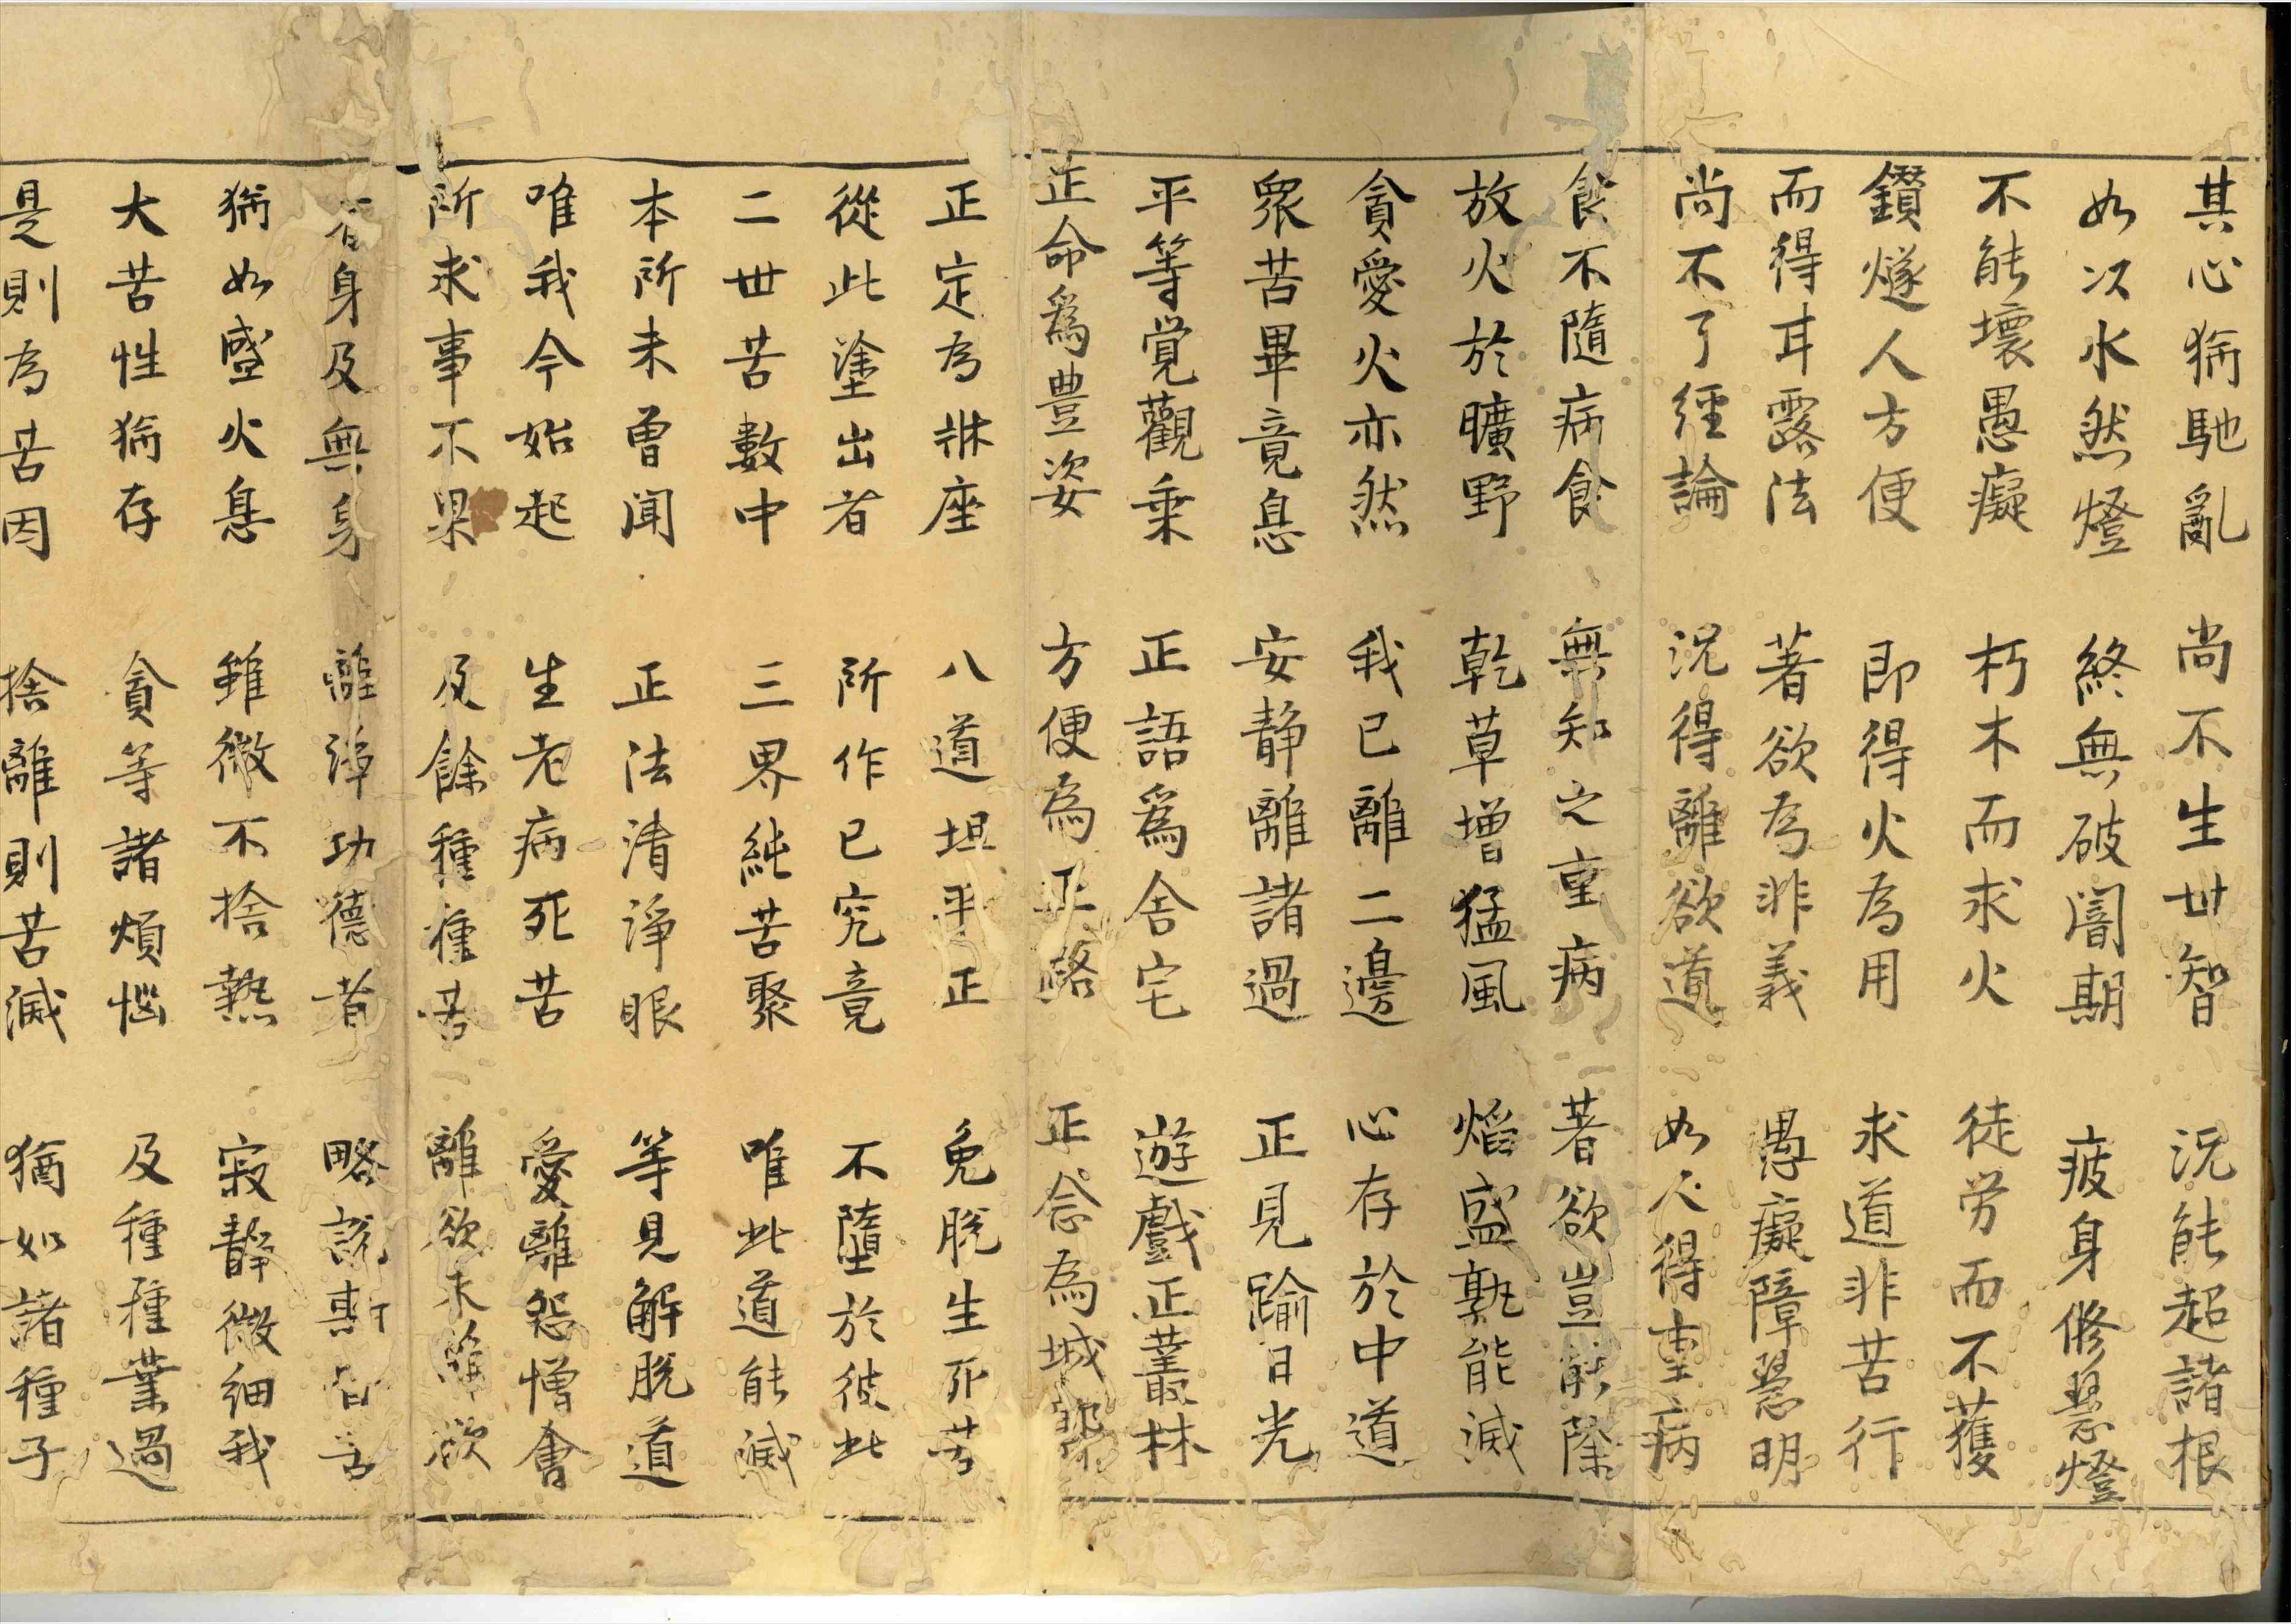 其心猶馳亂　尚不生世智　況能超諸根
如以水然燈　終無破闇期　疲身修慧燈
不能壞愚癡　朽木而求火　徒労而不獲
鑚燧人方便　即得火為用　求道非苦行
而得甘露法　著欲為非義　愚癡障慧明
尚不了經論　況得離欲道　如人得重病
食不隨病食　無知之重病　著欲豈能除
放火於曠野　乾草增猛風　焰盛孰能滅
貪愛火亦然　我已離二邊　心存於中道
衆苦畢竟息　安静離諸過　正見踰日光
平等覚觀乗　正語為舍宅　遊戲正業叢林
正命為豊姿　方便為正路　正念為城郭
正定為牀座　八道坦平正　免脱生死苦
從此塗出者　所作已究竟　不墮於彼此
二世苦數中　三界純苦聚　唯此道能滅
本所未曽聞　正法清淨眼　等見解脱道
唯我今始起　生老病死苦　愛離怨憎會
所求事不果　及餘種種苦　離欲未離欲
有身及無身　離淨功德者　略説斯皆苦
猶如盛火息　雖微不捨熱　寂靜微細我
大苦性猶存　貪等諸煩惱　及種種業過
是則為苦因　捨離則苦滅　猶如諸種子